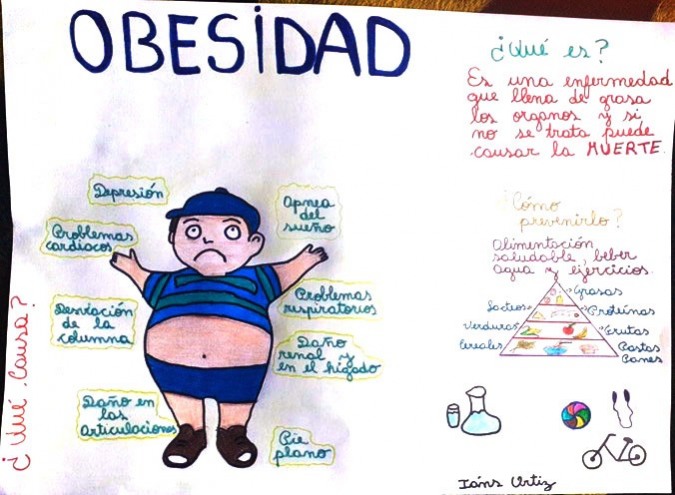 OBESIDAD
¿Qué es?
Es una enfermedad
que llena de grasa
los organos y si
no se trata puede
causar la MUERTE.
¿Qué causa?
Depresión
Problemas
cardiacos
Desviación
de la
columna
Daño en
las
articulaciones
Apnea
del
sueño
Problemas
respiratorios
Daño
renal y
en el hígado
Pie
plano
¿Cómo
prevenirlo?
Alimentación
saludable, beber
agua y ejercicios.
Grasas
Lacteos
Proteínas
Verduras
Frutas
Cereales
Pastas
Panes
Ortiz